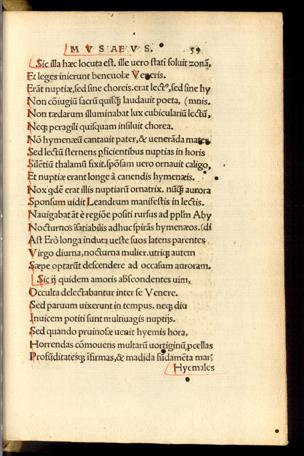 MVSAEVS. 59
Sic illa hæc locuta est. ille uero stati soluit zonã.
Et leges inierunt beneuolæ Veneris.
Erãt nuptiæ, sed sine choreis. erat lectꝰ, sed sine hy
Non cõiugiũ sacrũ quisq̃ laudauit poeta, (mnis.
Non tædarum illuminabat lux cubiculariũ lectũ,
Neqꝫ peragili quisquam insiluit chorea.
Nõ hymenæũ cantauit pater, & uenerãda mater
Sed lectũ sternens pficientibus nuptias in horis
Silẽtiũ thalamũ fixit. spõsam uero ornauit caligo,
Et nuptiæ erant longe à canendis hymenæis.
Nox qdẽ erat illis nuptiarũ ornatrix. nũq̃ aurora
Sponsum uidit Leandrum manifestis in lectis.
Nauigabat ãt è regiõe positi rursus ad pplm Aby
Nocturnos ĩsatiabilis adhuc spirãs hymenæos. (di
Ast Erò longa induta ueste suos latens parentes
Virgo diurna, nocturna mulier. utriqꝫ autem
Sæpe optarũt descendere ad occasum auroram.
Sic ij quidem amoris abscondentes uim,
Occulta delectabantur inter se Venere.
Sed paruum uixerunt in tempus. neqꝫ diu
Inuicem potiti sunt multiuagis nuptijs.
Sed quando pruinosæ uenit hyemis hora,
Horrendas cõmouens multarũ uortiginũ pcellas
Profũditatesqꝫ ĩfirmas, & madida fũdamẽta maris
Hyemales